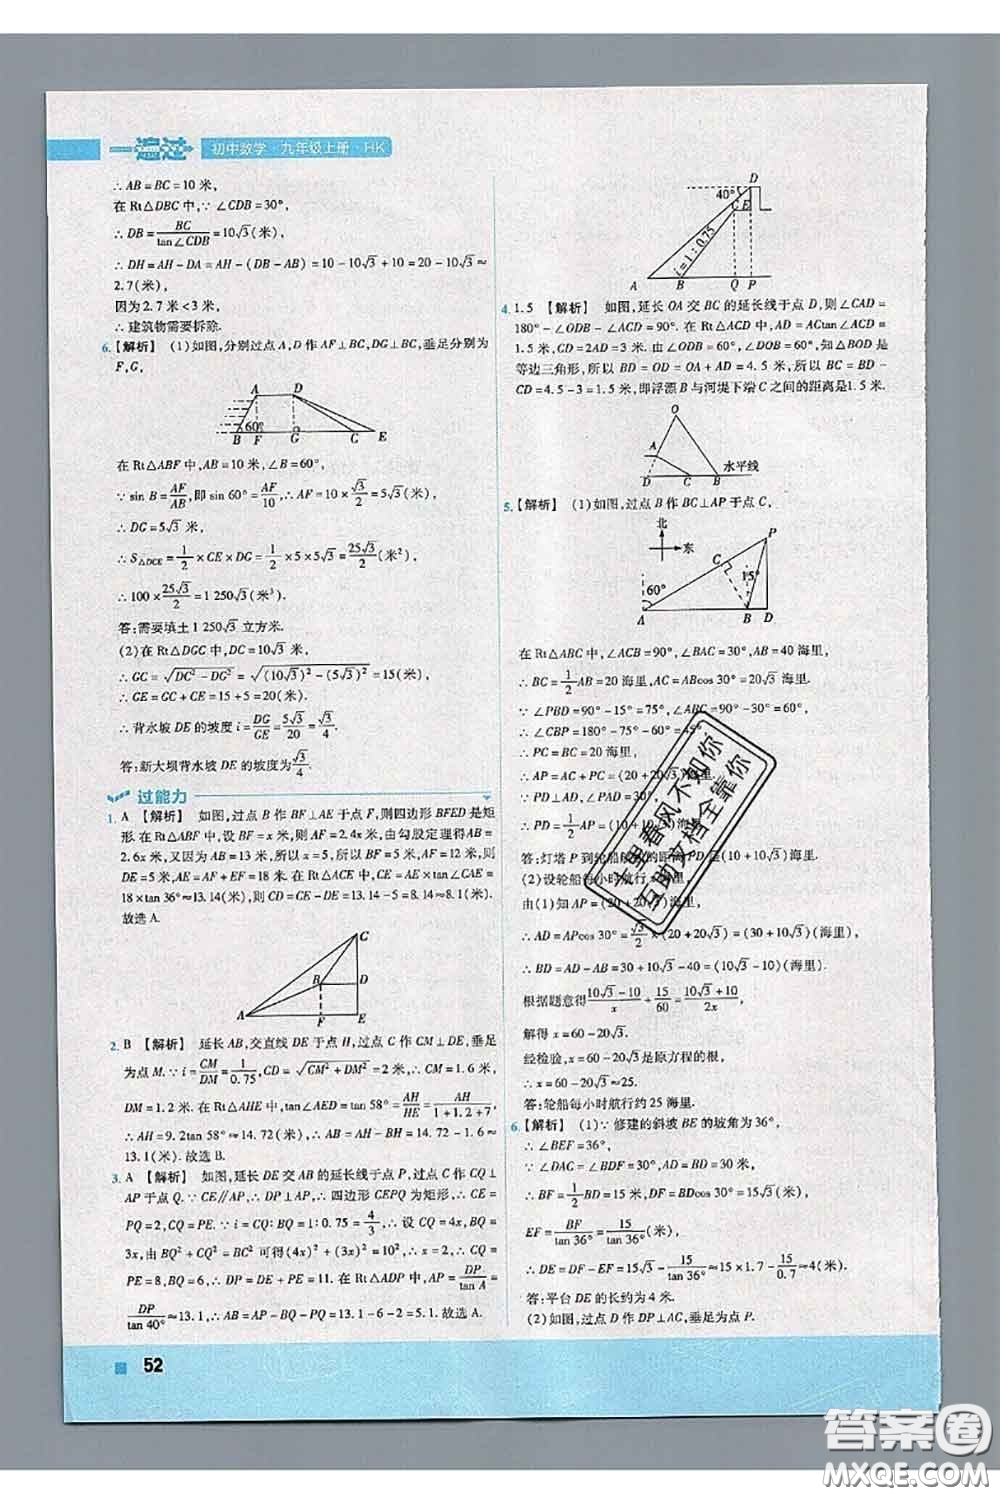 一遍过
初中数学·九年级上册·HK
∴ AB=BC=10 米,
在 Rt△DBC 中,∵ ∠CDB=30°,
∴ DB=BC/tan∠CDB=10√3(米),
∴ DH=AH-DA=AH-(DB-AB)=10-10√3+10=20-10√3≈
2.7(米),
因为 2.7 米<3 米,
∴ 建筑物需要拆除.
6.【解析】 (1)如图,分别过点 A,D 作 AF⊥BC,DG⊥BC,垂足分别为
F,G,
A D
60°
B F G C E
在 Rt△ABF 中,AB=10 米,∠B=60°,
∵ sin B=AF/AB,即 sin 60°=AF/10,∴ AF=10×√3/2=5√3(米),
∴ DG=5√3 米,
∴ S△DCE=1/2×CE×DG=1/2×5×5√3=25√3/2(米²),
∴ 100×25√3/2=1 250√3(米³).
答:需要填土 1 250√3 立方米.
(2)在 Rt△DGC 中,DC=10√3 米,
∴ GC=√(DC²-DG²)=√((10√3)²-(5√3)²)=15(米),
∴ GE=GC+CE=15+5=20(米),
∴ 背水坡 DE 的坡度 i=DG/GE=5√3/20=√3/4.
答:新大坝背水坡 DE 的坡度为√3/4.
过能力
1. A 【解析】 如图,过点 B 作 BF⊥AE 于点 F,则四边形 BFED 是矩
形.在 Rt△ABF 中,设 BF=x 米,则 AF=2.4x 米,由勾股定理得 AB=
2.6x 米,又因为 AB=13 米,所以 x=5,所以 BF=5 米,AF=12 米,所以
DE=5 米,AE=AF+EF=18 米.在 Rt△ACE 中,CE=AE×tan∠CAE=
18×tan 36°≈13.14(米),则 CD=CE-DE=13.14-5≈8.1(米).
故选 A.
C
B D
A F E
2. B 【解析】 延长 AB,交直线 DE 于点 H,过点 C 作 CM⊥DE,垂足
为点 M.∵ i=CM/DM=1/0.75,CD=√(CM²+DM²)=2 米,∴ CM=1.6 米,
DM=1.2 米.在 Rt△AHE 中,tan∠AED=tan 58°=AH/HE=AH/(1+1.2+7),
∴ AH=9.2tan 58°≈14.72(米),∴ AB=AH-BH=14.72-1.6≈
13.1(米).故选 B.
3. A 【解析】 如图,延长 DE 交 AB 的延长线于点 P,过点 C 作 CQ⊥
AP 于点 Q.∵ CE∥AP,∴ DP⊥AP,∴ 四边形 CEPQ 为矩形,∴ CE=
PQ=2,CQ=PE.∵ i=CQ:BQ=1:0.75=4/3,∴ 设 CQ=4x,BQ=
3x,由 BQ²+CQ²=BC² 可得(4x)²+(3x)²=10²,∴ x=2,∴ CQ=
PE=8,BQ=6,∴ DP=DE+PE=11.在 Rt△ADP 中,AP=DP/tan A=
DP/tan 40°≈13.1,∴ AB=AP-BQ-PQ=13.1-6-2=5.1.故选 A.
D
40°
C E
i=1:0.75
A B Q P
4. 1.5 【解析】 如图,延长 OA 交 BC 的延长线于点 D,则∠CAD=
180°-∠OAC=90°.在 Rt△ACD 中,AD=ACtan∠ACD=
1.5 米,CD=2AD=3 米.由∠ODB=60°,∠DOB=60°,知△BOD 是
等边三角形,所以 BD=OD=OA+AD=4.5 米,所以 BC=BD-
CD=4.5-3=1.5 米,即浮漂 B 与河堤下端 C 之间的距离是1.5 米.
O
A
水平线
D C B
5.【解析】 (1)如图,过点 B 作 BC⊥AP 于点 C,
北
东
P
C
60°
15°
A B D
在 Rt△ABC 中,∠ACB=90°,∠BAC=30°,AB=40 海里,
∴ BC=1/2AB=20 海里,AC=ABcos 30°=20√3 海里.
∵ ∠PBD=90°-15°=75°,∠ABC=90°-30°=60°,
∴ ∠CBP=180°-75°-60°=45°,
∴ PC=BC=20 海里,
∴ AP=AC+PC=(20+20√3)海里.
∵ PD⊥AD,∠PAD=30°,
∴ PD=1/2AP=(10+10√3)海里.
答:灯塔 P 到轮船航线的距离 PD 是(10+10√3)海里.
(2)设轮船每小时航行 x 海里.
由(1)知 AP=(20+20√3)海里,
∴ AD=APcos 30°=√3/2×(20+20√3)=(30+10√3)(海里),
∴ BD=AD-AB=30+10√3-40=(10√3-10)(海里).
根据题意得(10√3-10)/x+15/60=(10√3+10)/2x,
解得 x=60-20√3.
经检验,x=60-20√3是原方程的根,
∴ x=60-20√3≈25.
答:轮船每小时航行约 25 海里.
6.【解析】 (1)∵ 修建的斜坡 BE 的坡角为 36°,
∴ ∠BEF=36°.
∵ ∠DAC=∠BDF=30°,AD=BD=30 米,
∴ BF=1/2BD=15 米,DF=BDcos 30°=15√3(米),
EF=BF/tan 36°=15/tan 36°(米),
∴ DE=DF-EF=15√3-15/tan 36°≈15×1.7-15/0.7≈4(米).
答:平台 DE 的长约为 4 米.
(2)如图,过点 D 作 DP⊥AC,垂足为点 P.
52
十里春风不如你
互助文档全靠你
答案圈
MXQE.COM